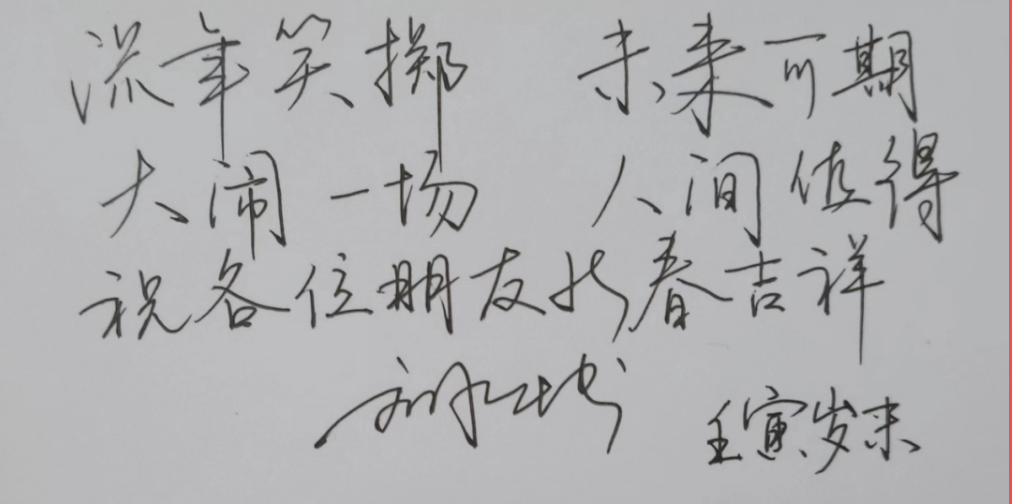 流年笑掷 未来可期
大闹一场 人间值得
祝各位朋友新春吉祥
壬寅岁末